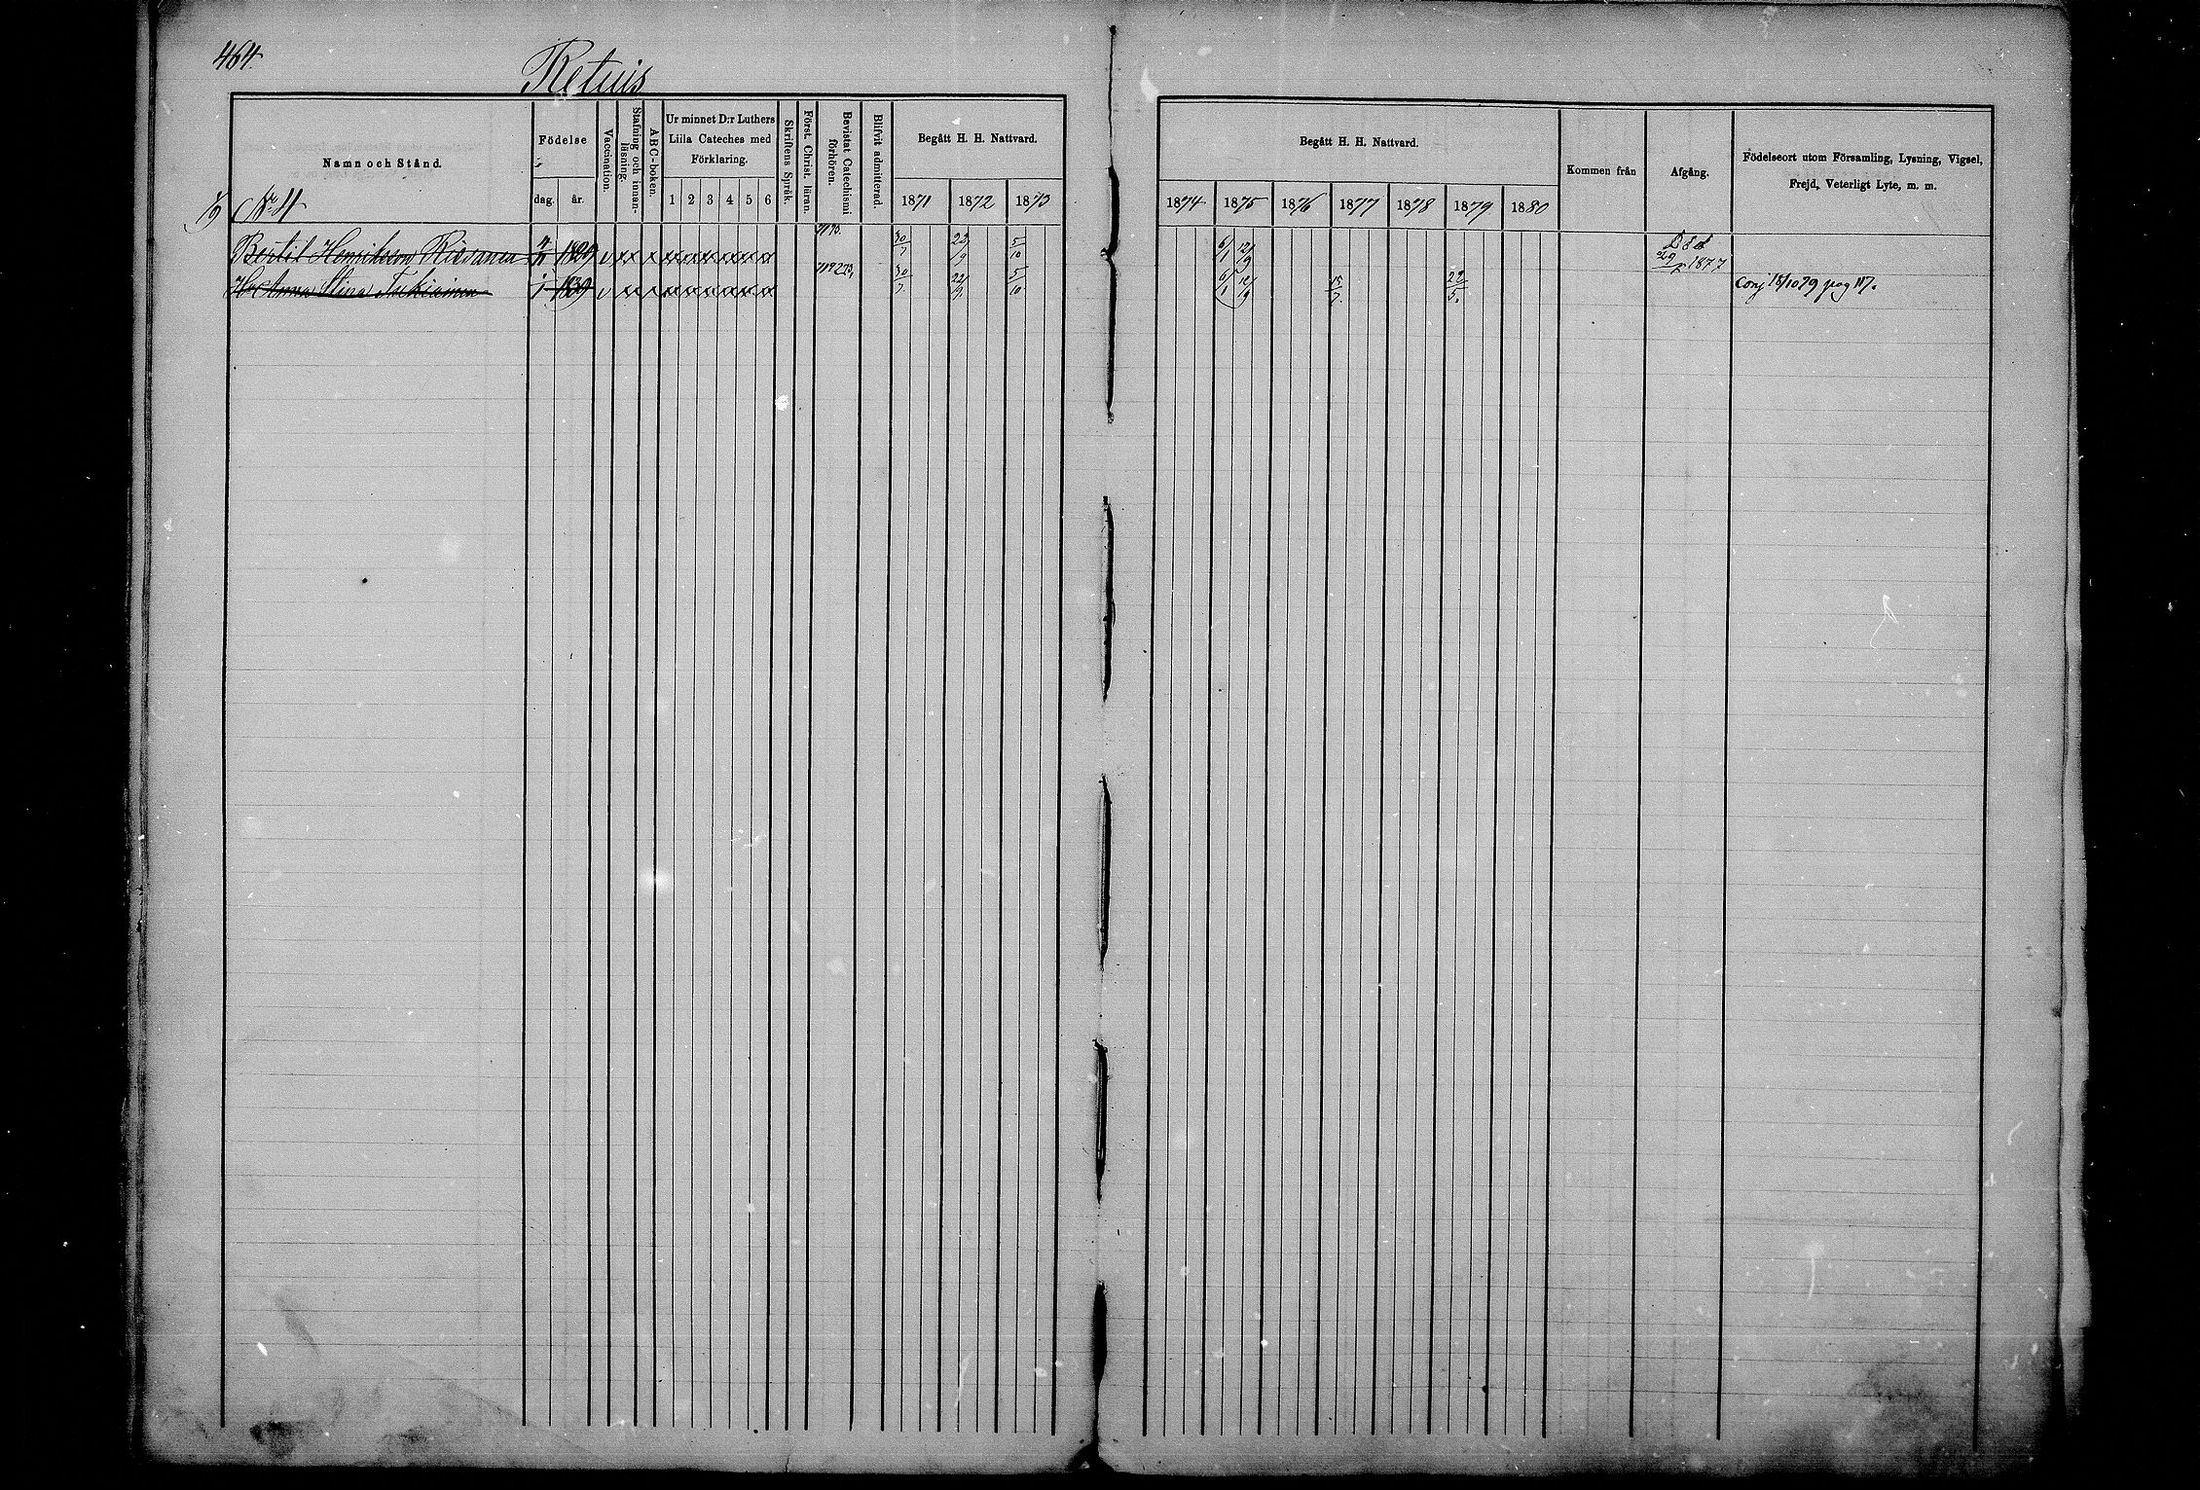 464
Retuis
Namn och Stånd.
Födelse
dag. år.
Vaccination.
Stafning och innanläsning.
ABC-boken.
Ur minnet D:r Luthers
Lilla Cateches med
Förklaring.
1 2 3 4 5 6
Skriftens Språk.
Först. Christ. läran.
Bevistat Catechismi förhören.
Blifvit admitterad.
Begått H. H. Nattvard.
1871 1872 1873
Begått H. H. Nattvard.
1874 1875 1876 1877 1878 1879 1880
Kommen från
Afgång.
Födelseort utom Församling, Lysning, Vigsel,
Frejd, Veterligt Lyte, m. m.
Bertil Henriksson 30/7 22/9 5/10 6/1 12/9 Död 29/ 1877
H. Anna Stina 1839 30/7 22/9 5/10 6/1 12/9 15/7 22/5 Conj 18/10 79 pag 117.